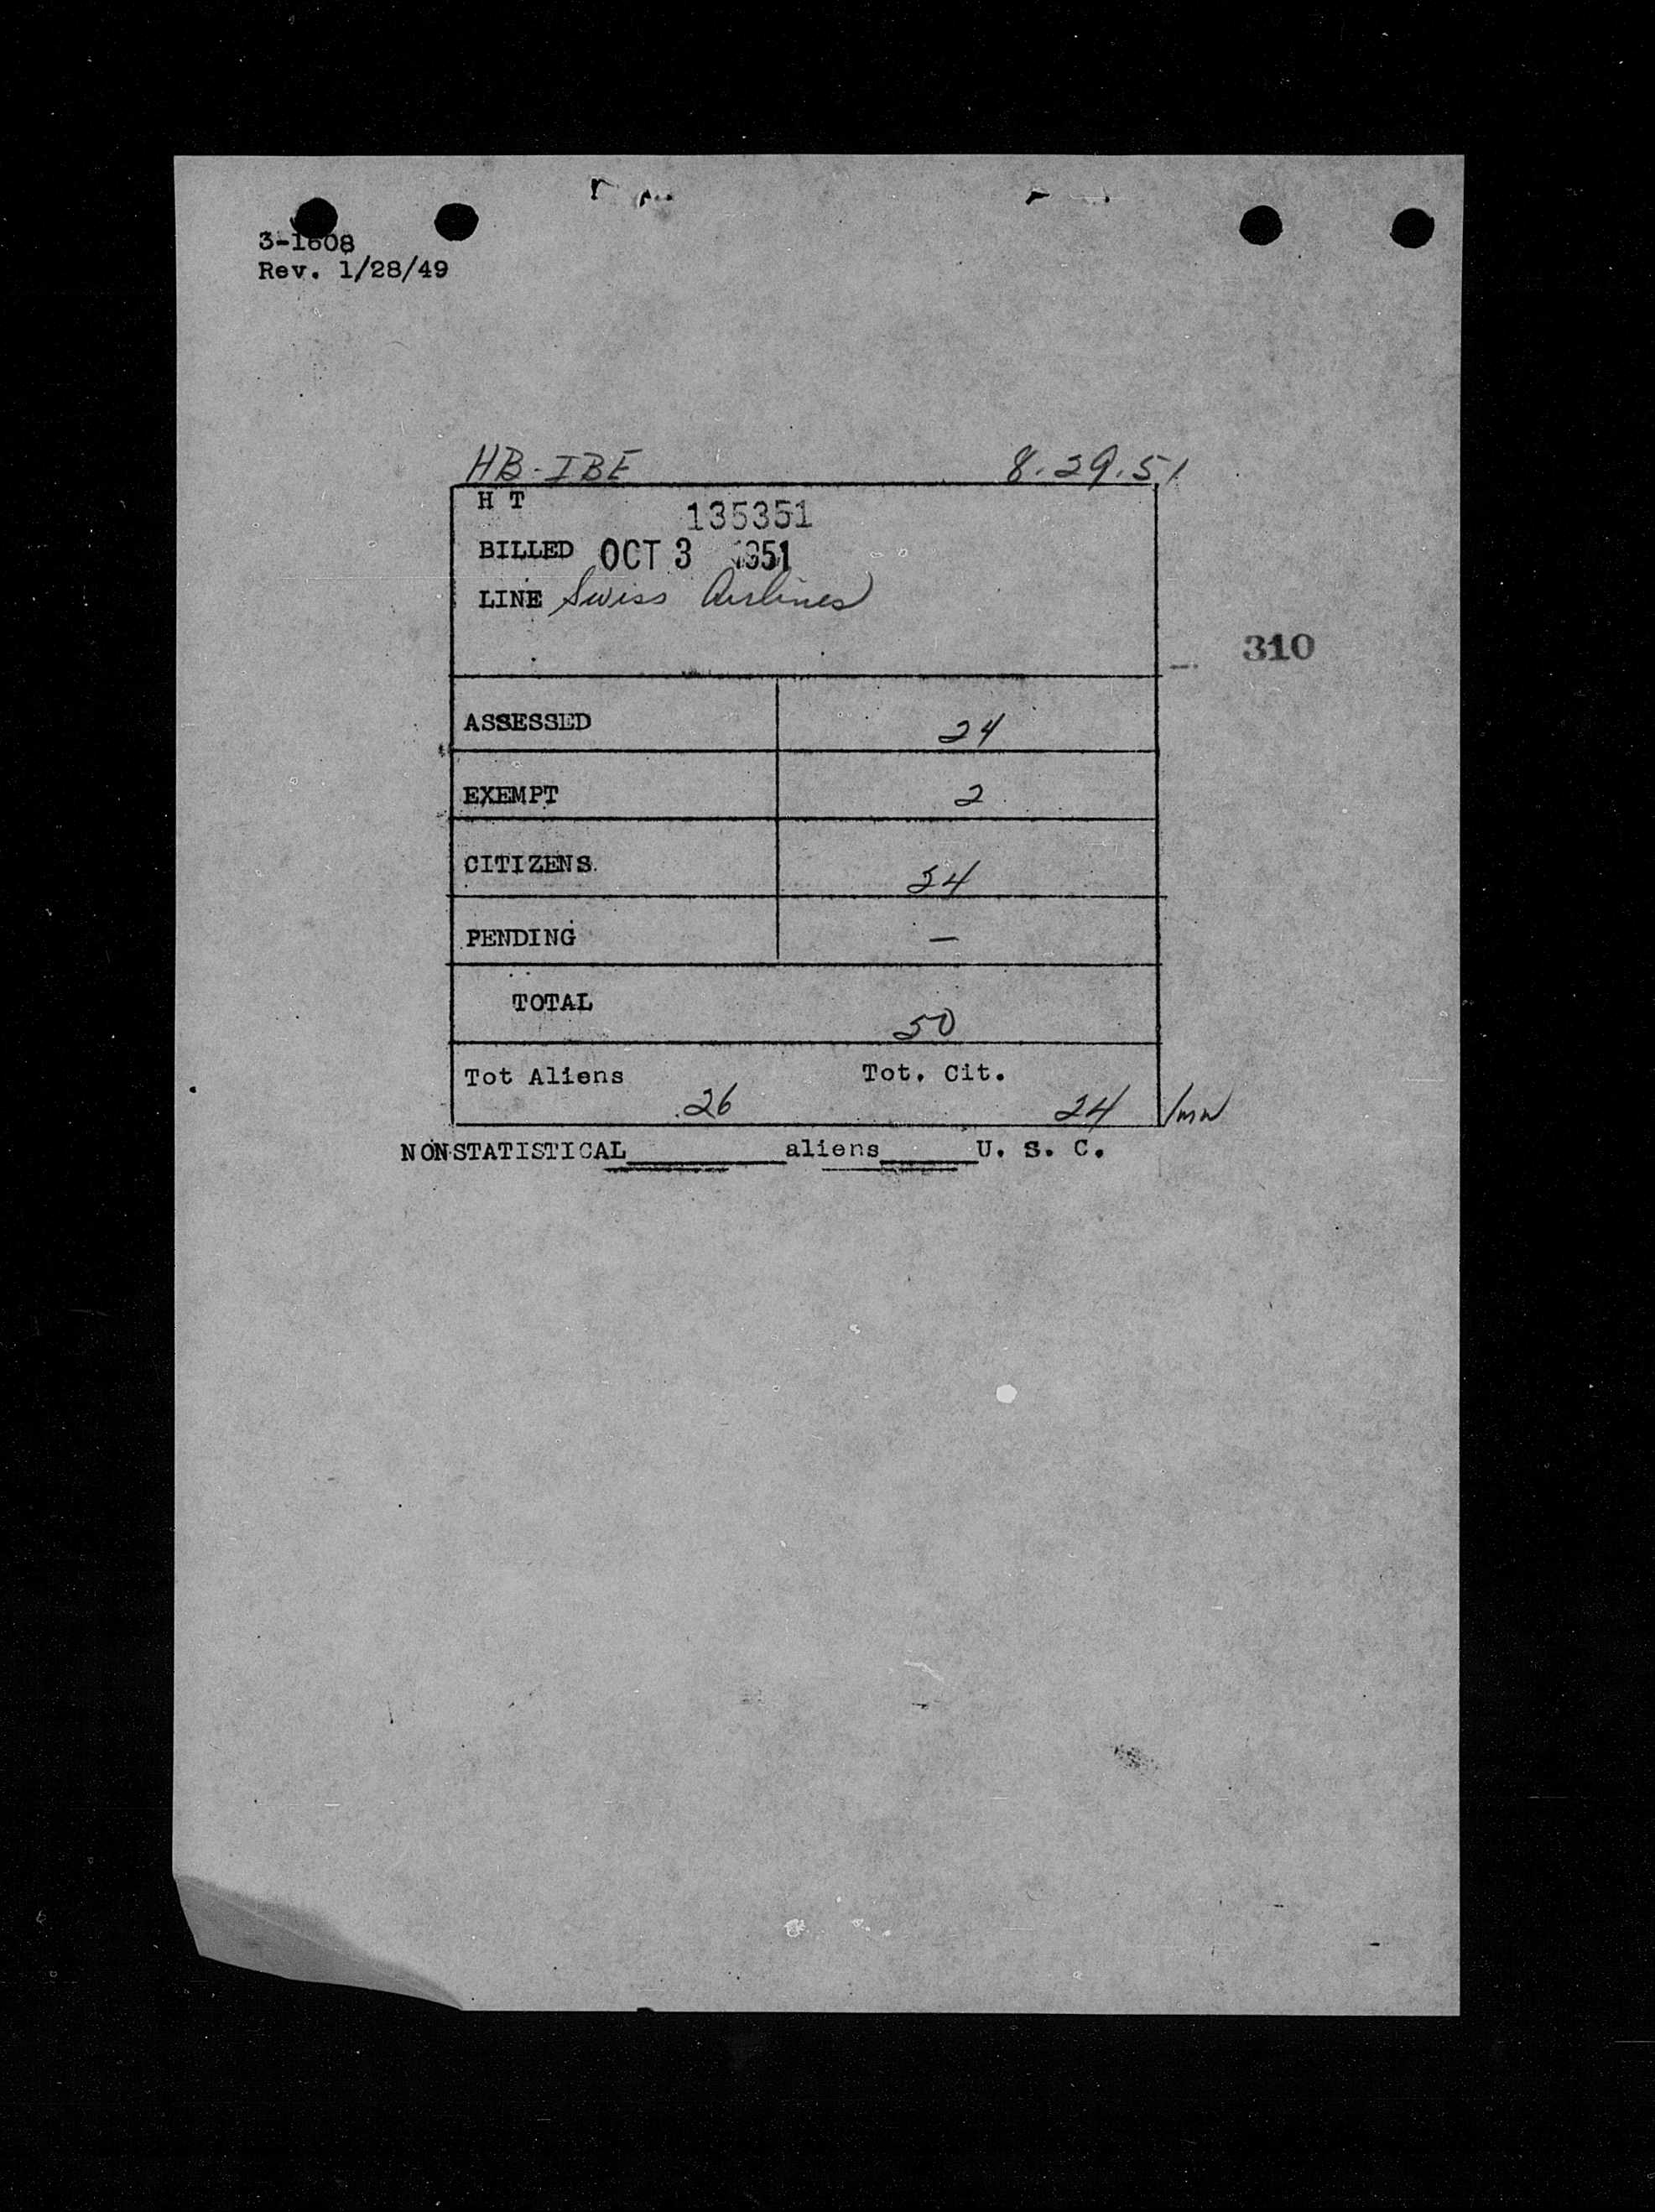 3-1608
Rev. 1/28/49
HB-IBE 8.29.51
H T 135351
BILLED OCT 3 1951
LINE Swiss Airlines
310
ASSESSED 24
EXEMPT 2
CITIZENS 24
PENDING —
TOTAL 50
Tot Aliens 26 Tot. Cit. 24 /mw
NONSTATISTICAL________ aliens_____U. S. C.